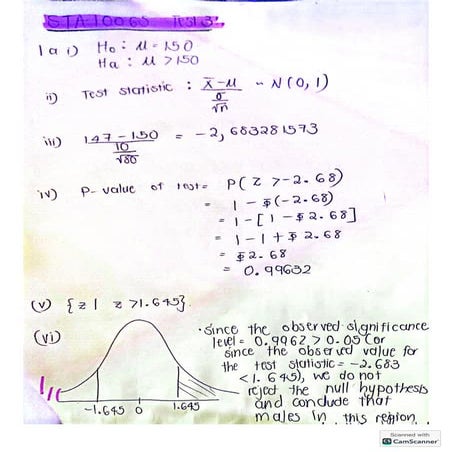 STA10065 Test 3
1 a i) Ho : μ = 150
Ha : μ > 150
ii) Test statistic : X̄ - μ / σ/√n ~ N(0, 1)
iii) 147 - 150 / 10/√80 = -2,683281573
iv) P-value of test = P(Z > -2.68)
= 1 - Φ(-2.68)
= 1 - [1 - Φ 2.68]
= 1 - 1 + Φ 2.68
= Φ 2.68
= 0.99632
(v) {z | z > 1.645}
(vi)
-1.645 0 1.645
• Since the observed significance
level = 0.9962 > 0.05 (or
since the observed value for
the test statistic = -2.683
< 1.645), we do not
reject the null hypothesis
and conclude that
males in this region
Scanned with
CamScanner